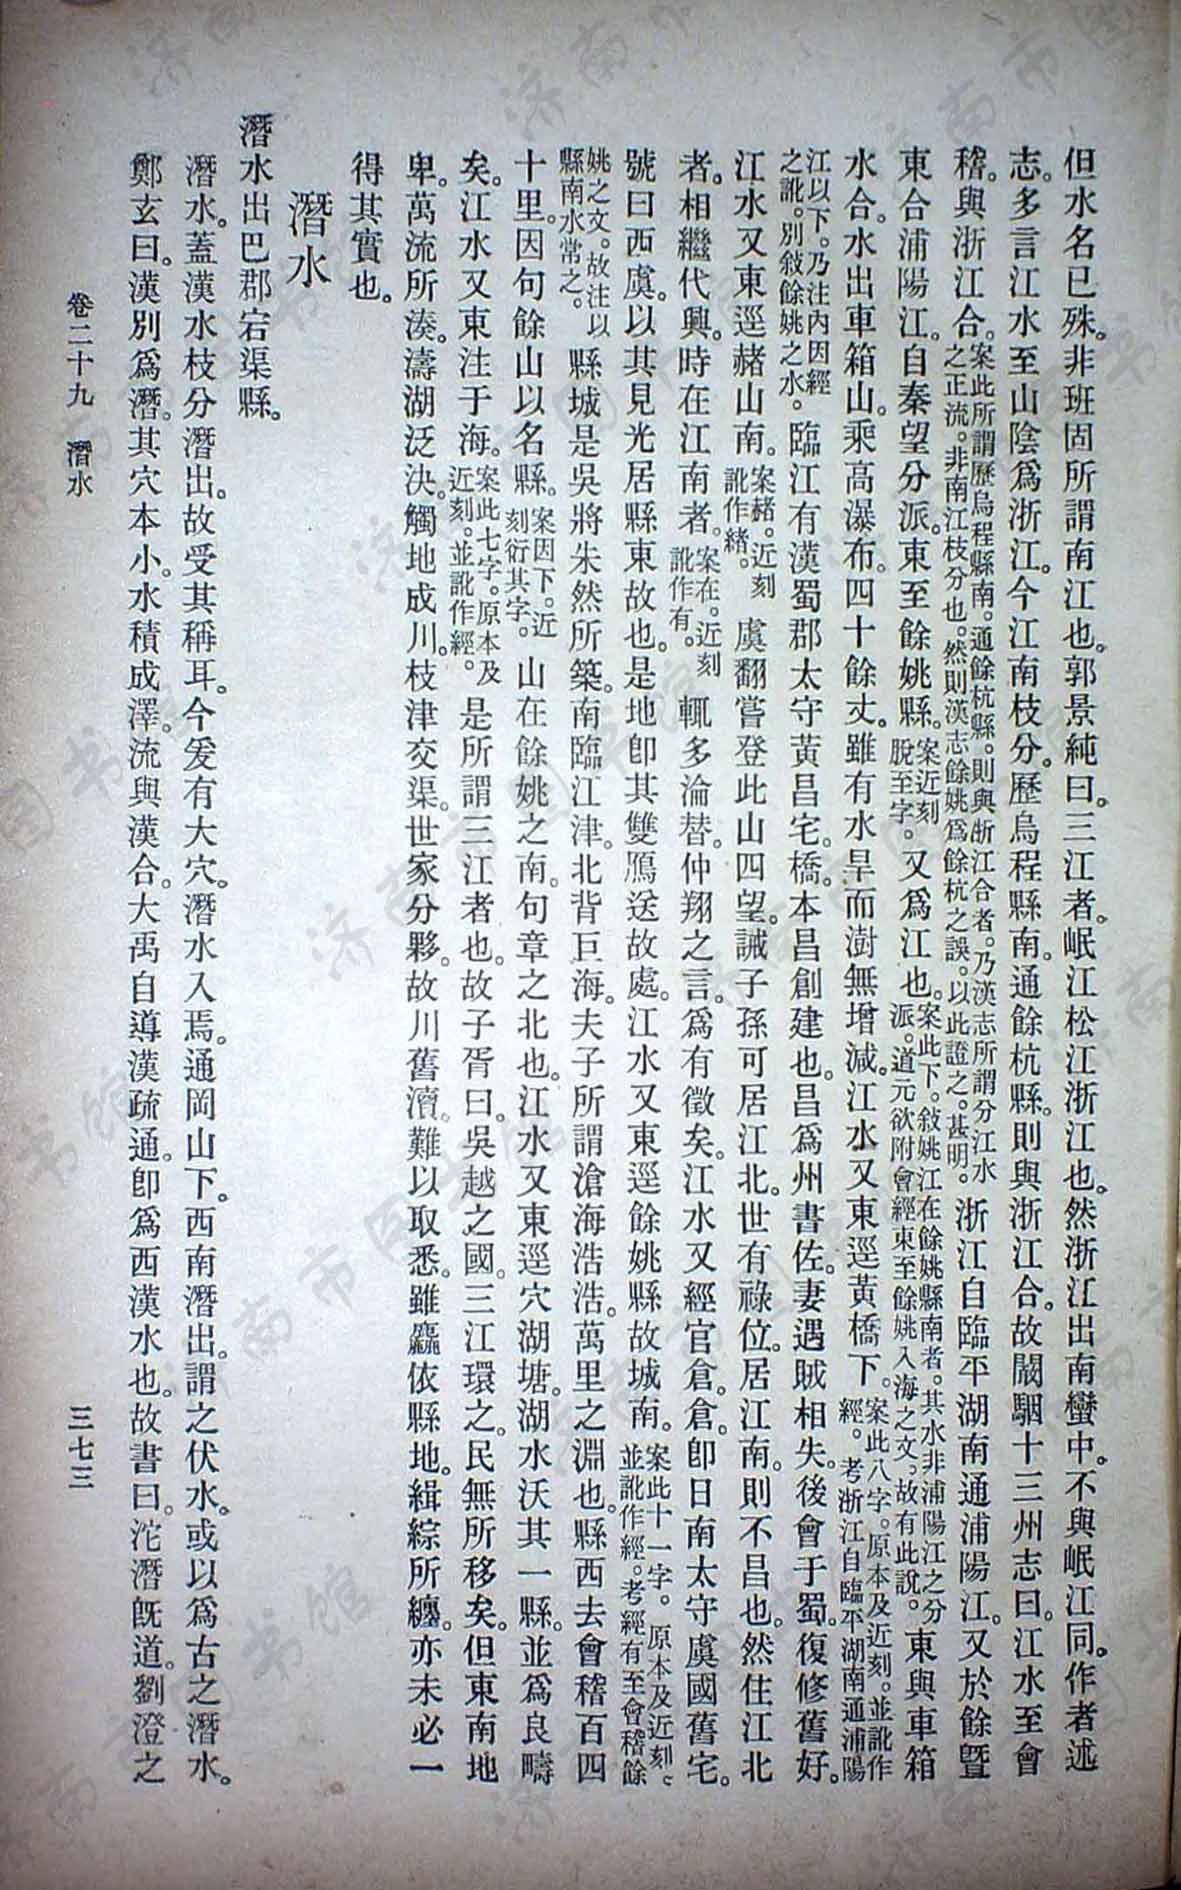 但水名已殊。非班固所謂南江也。郭景純曰。三江者。岷江松江浙江也。然浙江出南蠻中。不與岷江同。作者述
志。多言江水至山陰爲浙江。今江南枝分。歷烏程縣南。通餘杭縣。則與浙江合。故闞駰十三州志曰。江水至會
稽。與浙江合。案此所謂歷烏程縣南。通餘杭縣。則與浙江合者。乃漢志所謂分江水之正流。非南江枝分也。然則漢志餘姚爲餘杭之誤。以此證之。甚明。浙江自臨平湖南通浦陽江。又於餘曁
東合浦陽江。自秦望分派。東至餘姚縣。案近刻脫至字。又爲江也。案此下。敍姚江在餘姚縣南者。其水非浦陽江之分派。道元欲附會經東至餘姚入海之文。故有此說。東與車箱
水合。水出車箱山。乘高瀑布。四十餘丈。雖有水旱而澍無增減。江水又東逕黃橋下。案此八字。原本及近刻。並訛作經。考浙江自臨平湖南通浦陽
江以下。乃注內因經之訛。別敍餘姚之水。臨江有漢蜀郡太守黃昌宅。橋。本昌創建也。昌爲州書佐。妻遇賊相失。後會于蜀。復修舊好。
江水又東逕赭山南。案赭。近刻訛作緒。虞翻嘗登此山四望。誡子孫可居江北。世有祿位。居江南。則不昌也。然住江北
者。相繼代興。時在江南者。案在。近刻訛作有。輒多淪替。仲翔之言。爲有徵矣。江水又經官倉。倉。卽日南太守虞國舊宅。
號曰西虞。以其見光居縣東故也。是地卽其雙鴈送故處。江水又東逕餘姚縣故城南。案此十一字。原本及近刻。並訛作經。考經有至會稽餘
姚之文。故注以縣南水常之。縣城是吳將朱然所築。南臨江津。北背巨海。夫子所謂滄海浩浩。萬里之淵也。縣西去會稽百四
十里。因句餘山以名縣。案因下。近刻衍其字。山在餘姚之南。句章之北也。江水又東逕穴湖塘。湖水沃其一縣。並爲良疇
矣。江水又東注于海。案此七字。原本及近刻。並訛作經。是所謂三江者也。故子胥曰。吳越之國。三江環之。民無所移矣。但東南地
卑。萬流所湊。濤湖泛決。觸地成川。枝津交渠。世家分夥。故川舊瀆。難以取悉。雖麤依縣地。緝綜所纏。亦未必一
得其實也。
潛水
潛水出巴郡宕渠縣。
潛水。蓋漢水枝分潛出。故受其稱耳。今爰有大穴。潛水入焉。通岡山下。西南潛出。謂之伏水。或以爲古之潛水。
鄭玄曰。漢別爲潛。其穴本小。水積成澤。流與漢合。大禹自導漢疏通。卽爲西漢水也。故書曰。沱潛旣道。劉澄之
卷二十九 潛水 三七三